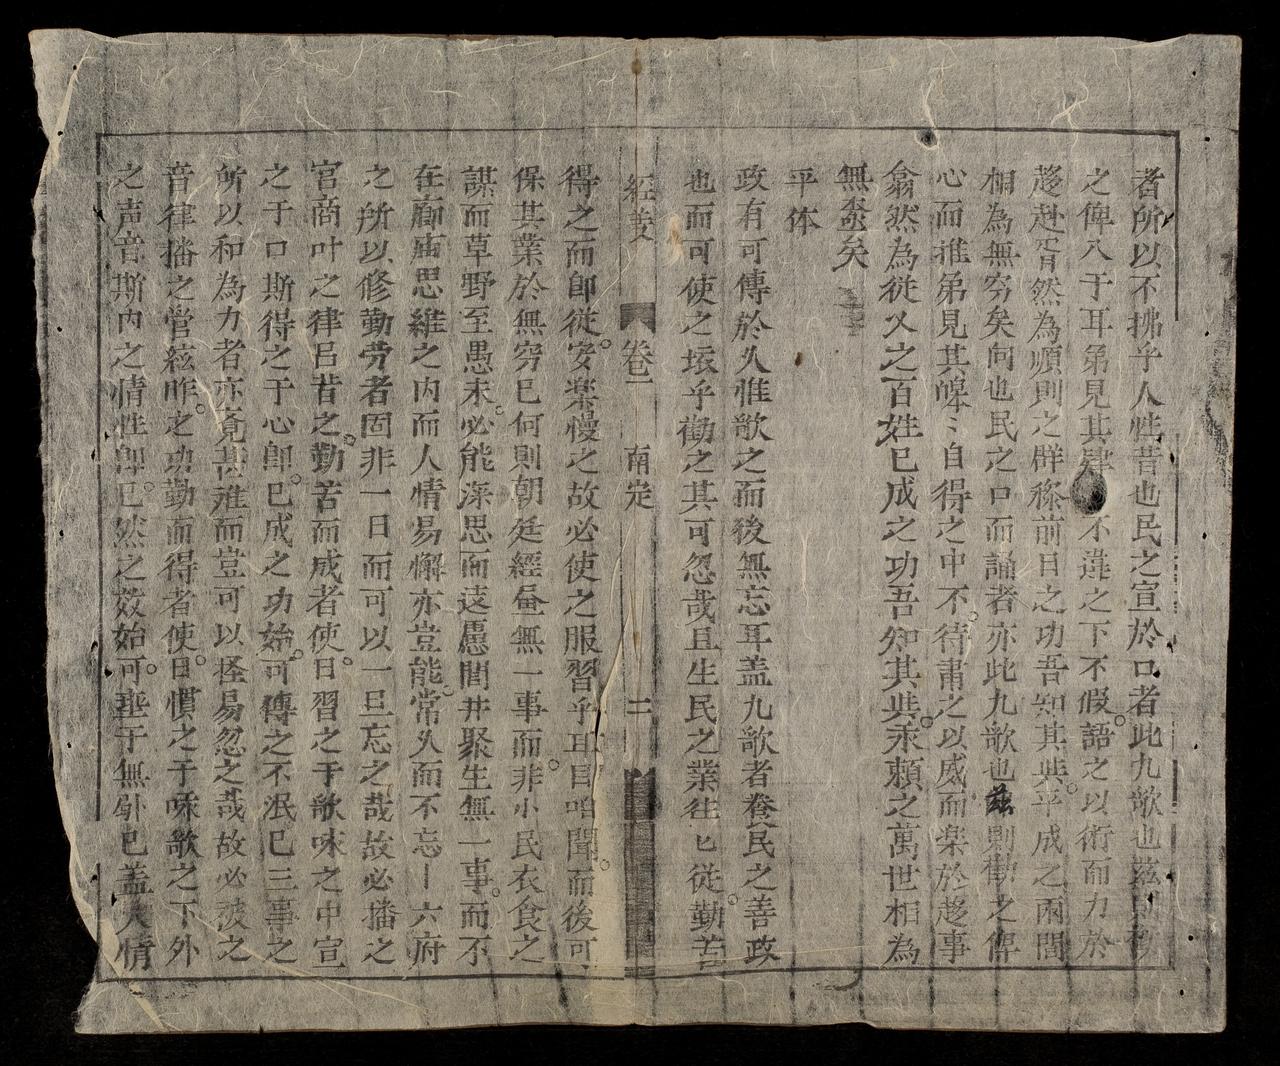 者所以不拂乎人性昔也民之宣於口者此九歌也茲則勸
之俾入于耳弟見其肆 不違之下不假語之以術而力於
趍赴胥然為順則之群黎前日之功吾知其與平成之兩間
相為無穷矣何也民之口而誦者亦此九歌也茲則勸之俾
心而推弟見其皞〻自得之中不待肅之以威而楽於趍事
翕然為従乂之百姓已成之功吾知其與永頼之萬世相為
無斁矣
平体
政有可傳於乆惟歌之而後無忘耳盖九歌者養民之善政
也而可使之壊乎勸之其可忽㢤且生民之業徃匕従勤苦
經義 卷一 南定 二
得之而即従安楽慢之故必使之服習乎耳目咱聞而後可
保其業於無穷已何則朝廷經畨無一事而非小民衣食之
謀而草野至愚未必能深思而遠慮閭井聚生無一事而不
在廊庙思維之内而人情易懈亦豈能常乆而不忘丨六府
之所以修勤劳者固非一日而可以一旦忘之㢤故必播之
宮商叶之律吕昔之勤苦而成者使日習之于歌咏之中宣
之于口斯得之于心即已成之功始可傳之不泯已三事之
所以和為力者亦竟甚难而豈可以怪易忽之㢤故必被之
音律播之管絃昨之功勤而得者使日慣之于咏歌之下外
之声音斯内之情性即已然之效始可垂于無斁已盖人情